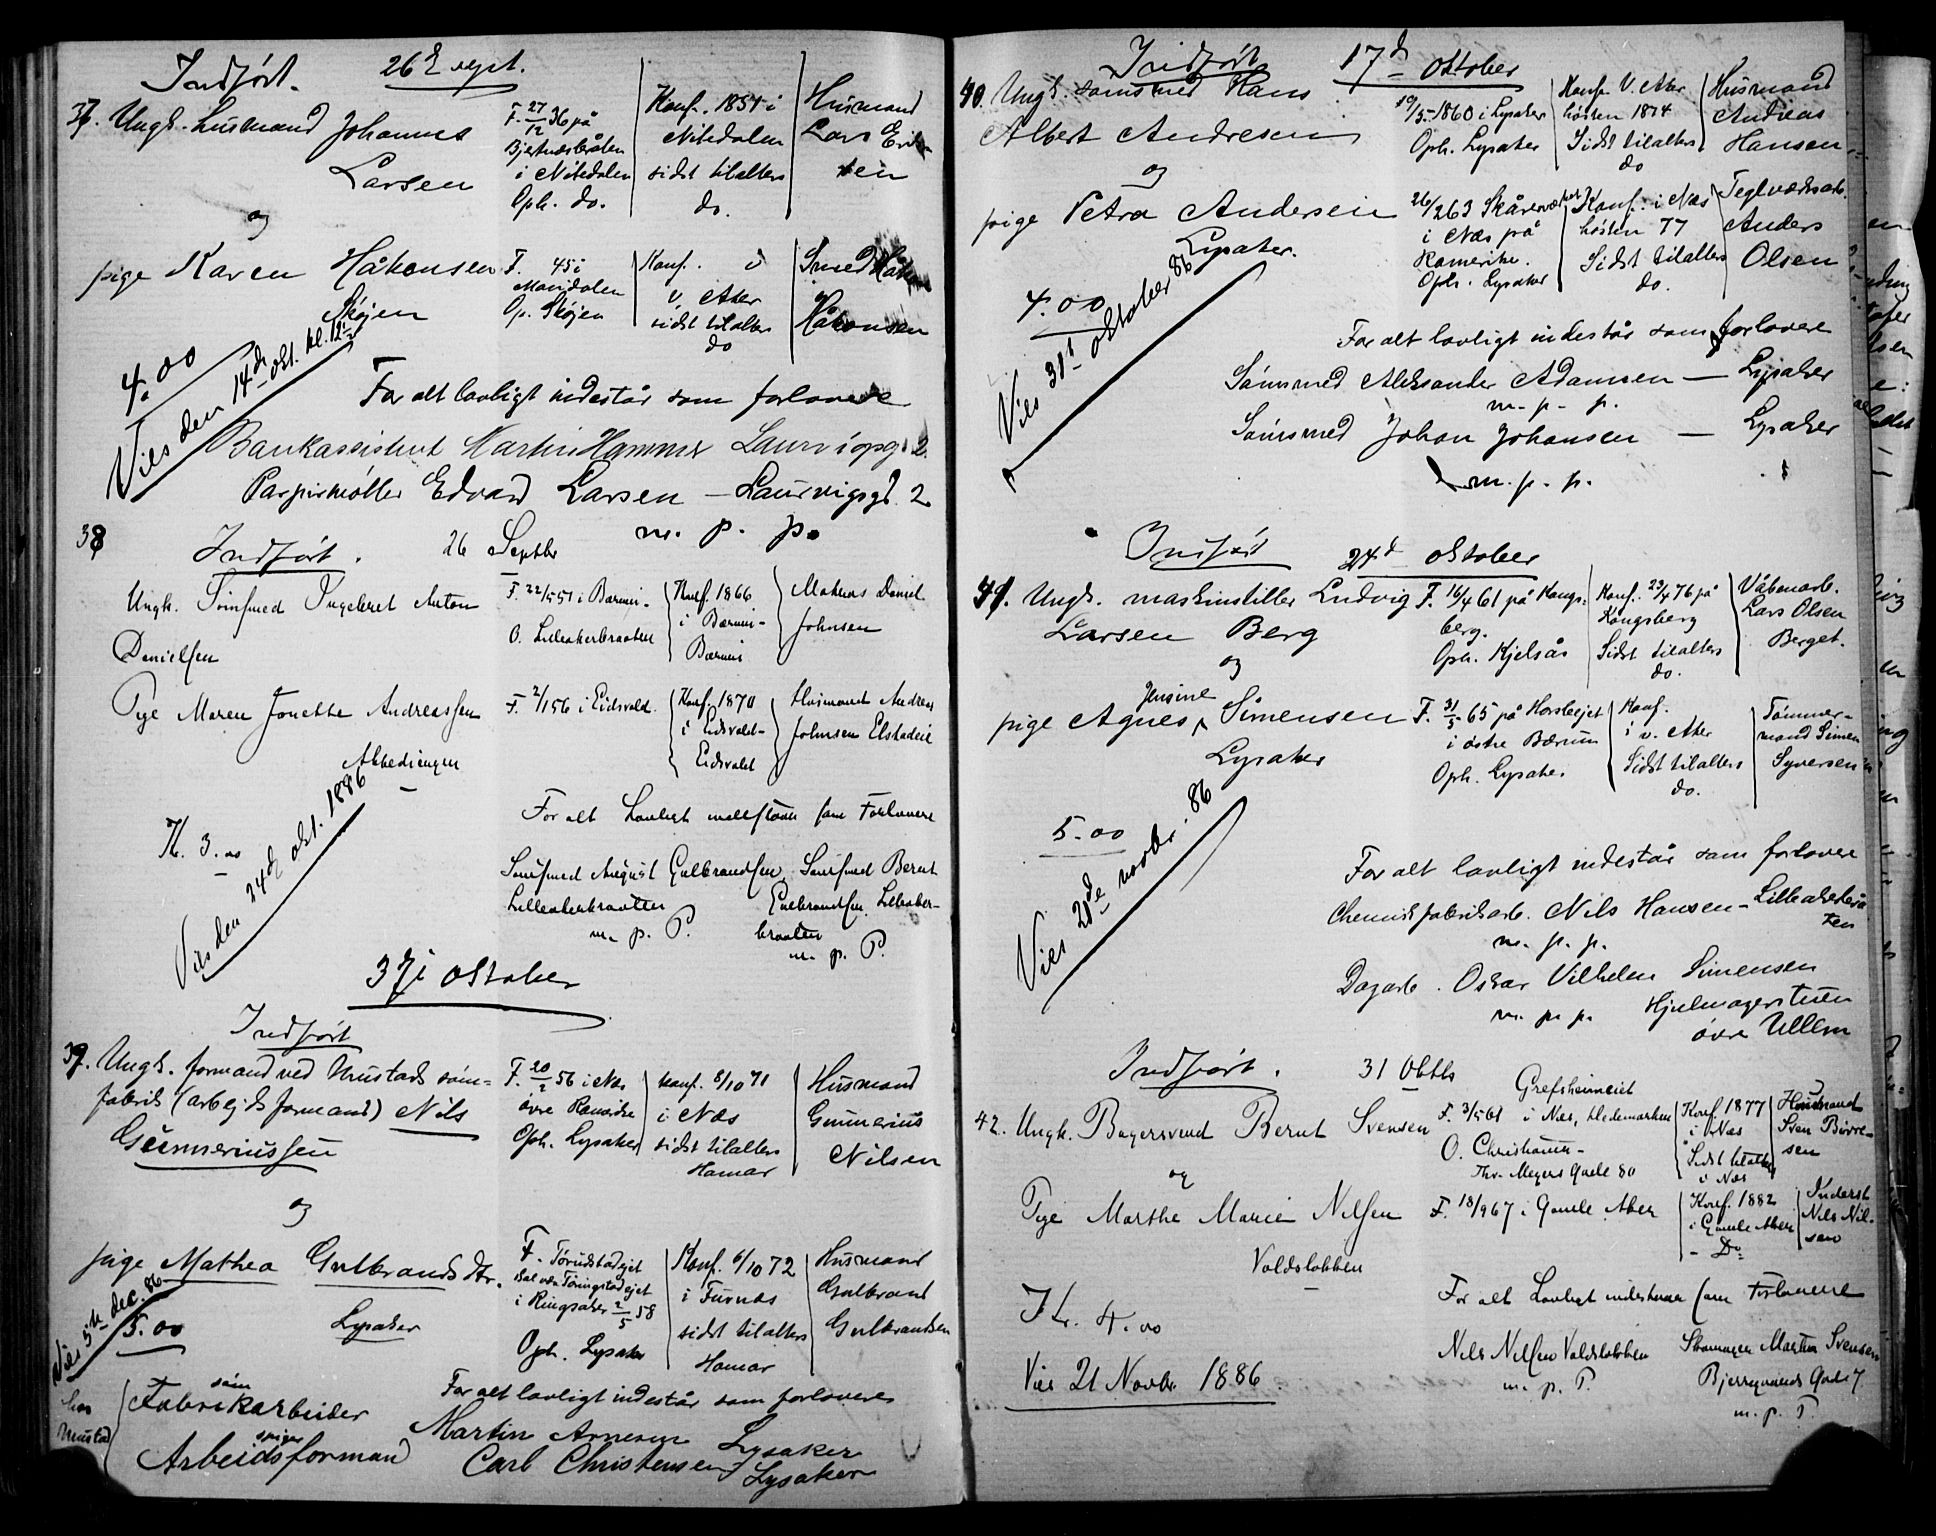 Indført. 26d sept.
37. Ungk. husmand Johannes
Larsen
F. 27/12 36 på
Bjertnæsbråten
i Nitedalen
Oph. do.
Konf. 1854 i
Nitedalen
sidst tilalters
do.
Husmand
Lars Erik-
sen
og
pige Karen Håkonsen
Skøjen
F. 45 i
Maridalen
Op. Skøjen
Konf. i
v. Aker
sidst tilalters
do
Smed Håkon
Håkonsen
4.00
Vies den 14de okt. kl. 12
For alt lovligt indestår som forlovere
Bankassistent Martin Hammer Laurvigsg. 2.
Edvard Larsen — Laurvigsgd. 2
m. p. p.
38
Indført. 26 Septbr
Ungk. Sömsmed Ingebret Anton
Danielsen
F. 22/5 51 i Bærum-
O. Lilleakerbraaten
Konf. 1866
i Bærum-
Bærum
Mathias Daniel
Johnsen
Pige Maren Jonette Andreassen
Abbediengen
F. 2/1 56 i Eidsvold.
Konf. 1870
i Eidsvold-
Eidsvold
Husmand Andreas
Johnsen Elstadeie
Kr. 3.00
Vies den 24de okt. 1886
For alt Lovligt indestaar som Forlovere
Sömsmed August Gulbrandsen
Lilleakerbraaten
m. p. P.
Sömsmed Bernt
Gulbrandsen, Lilleaker-
braaten
m. p. P.
3die oktober
Indført
39. Ungk. formand ved Mustads søm-
fabrik (arbejdsformand) Nils
Gunneriussen
F. 20/2 56 i Næs
øvre Romerike
Oph. Lysaker
konf. 8/10 71
i Næs
sidst tilalters
Hamar
Husmand
Gunnerius
Nilsen
og
pige Mathea Gulbrandsdtr.
Lysaker
F. Tørudstadejet
i Ringsaker 2/5 58
Oph. Lysaker
Konf. 6/10 72
i Furnæs
sidst tilalters
Hamar
Husmand
Gulbrand
Gulbrandsen
5.00
Vies 5te dec. 86
hos
Mustad
søm
Fabrikarbeider
spiger
Arbeidsformand
For alt lovligt indestår som forlovere
Martin Arnesen Lysaker
Carl Christensen Lysaker
Indført 17d oktober
40. Ungk. sømsmed Hans
Albert Andresen
10/5-1860 i Lysaker
Oph. Lysaker
Konf. V. Aker
høsten 1874
Sidst tilalters
do
Husmand
Andreas
Hansen
og
pige Petra Andersen
Lysaker.
26/2 63 Skåren
i Næs på
Romerike.
Oph. Lysaker
Konf. i Næs
høsten 77
Sidst tilalters
do.
Teglværksarb.
Anders
Olsen
4.00
Vies 31d oktober 86
For alt lovligt indestår som forlovere
Sømsmed Aleksander Adamsen — Lysaker
m. p. p.
Sømsmed Johan Johansen — Lysaker
m. p. p.
Indført 24d oktober
41. Ungk. maskinstiller Ludvig
Larsen Berg
F. 16/4 61 på Kongs-
berg.
Oph. Kjelsås
Konf. 23/4 76 på
Kongsberg
Sidst tilalters
do.
Våbenarb.
Lars Olsen
Berget.
og
Jensine
pige Agnes Simensen
Lysaker
F. 31/5 65 på Horslejet
i østre Bærum
Oph. Lysaker
Konf.
i v. Aker
Sidst tilalters
do.
Tømmer-
mand Simen
Syversen
5.00
Vies 28de novbr. 86
For alt lovligt indestår som forlovere
Chemisk fabrikarb. Nils Hansen — Lilleakerbrå-
ten
m. p. p.
Dagarb. Oskar Vilhelm Simensen
m. p. p. Hjulmagerstuen
øvre Ullern
Indført. 31 Obtb
42. Ungk. Bagersvend Bernt Svensen
Grefsheimeiet
F. 3/5 61 i Næs, Hedemarken
O. Christiania-
Thv. Meyers Gade 80
Konf. 1877
i Næs
Sidst tilalters
i Næs
Husmand
Sven Børre-
sen
og
Pige Marthe Marie Nilsen
Voldsløkken
F. 18/9 67 i Gamle Aker
Konf. 1882
i Gamle Aker
- Do
Inderst
Nils Nil-
sen
Kr. 4.00
Vies 21 Novbr. 1886.
For alt Lovligt indestaar som Forlovere
Nils Nilsen Voldsløkken
m. p. P.
Skomager Martin Svensen
Bjerregaards Gade 7
m. p. P.